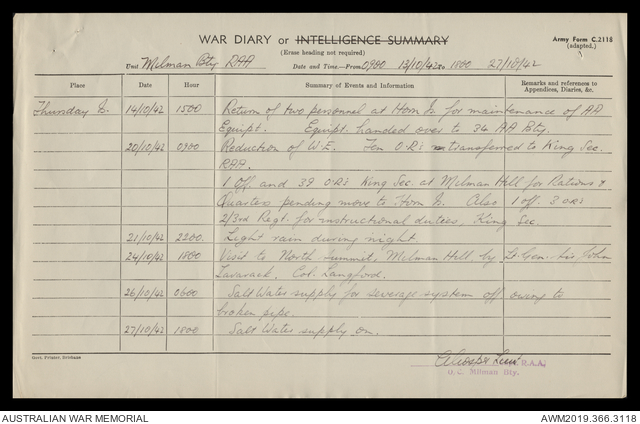 WAR DIARY or INTELLIGENCE SUMMARY
Army Form C.2118
(adapted.)
(Erase heading not required)
Unit Milman Bty RAA Date and Time—From 0900 13/10/42 to 1800 27/10/42
Place Date Hour Summary of Events and Information Remarks and references to Appendices, Diaries, &c.
Thursday Is. 14/10/42 1500 Return of two personnel at Horn Is for maintenance of AA
Equipt. Equipt. handed over to 34 AA Bty.
20/10/42 0900 Reduction of W.E. Ten O.R's transferred to King Sec.
RAA.
1 Off. and 39 O.R's King Sec. at Milman Hill for Rations &
Quarters pending move to Horn Is. Also 1 Off. 3 O.R's
2/3rd Regt. for instructional duties, King Sec.
21/10/42 2200. Light rain during night.
24/10/42 1800 Visit to North Summit, Milman Hill, by Lt. Gen. Sir John
Lavarack. Col. Langford.
26/10/42 0600 Salt Water supply for sewerage system off owing to
broken pipe.
27/10/42 1800 Salt Water supply on.
Govt. Printer, Brisbane
Lieut R.A.A.
O.C. Milman Bty.
AUSTRALIAN WAR MEMORIAL
AWM2019.366.3118